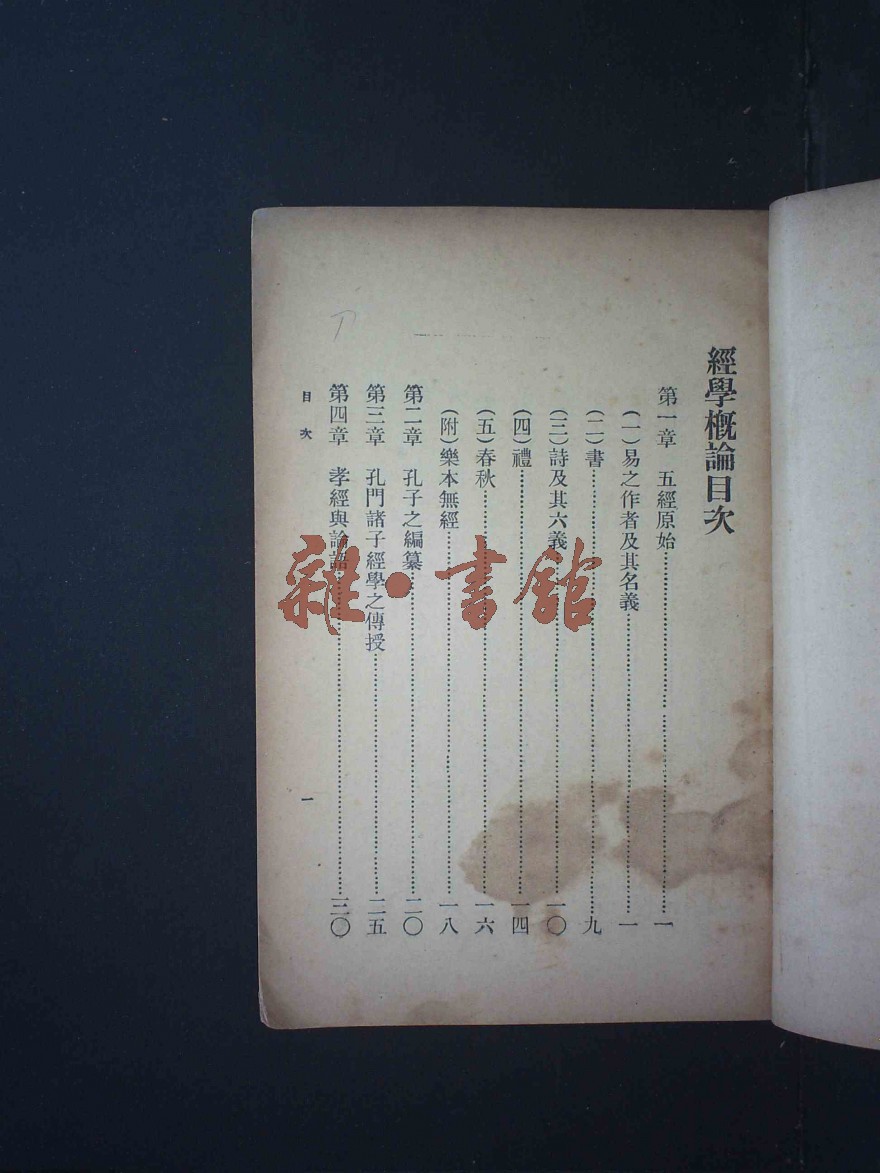 經學概論目次
第一章　五經原始……一
(一)易之作者及其名義……一
(二)書……九
(三)詩及其六義……一〇
(四)禮……一四
(五)春秋……一六
(附)樂本無經……一八
第二章　孔子之編纂……二〇
第三章　孔門諸子經學之傳授……二五
第四章　孝經與論語……三〇
目次
一
雜·書館